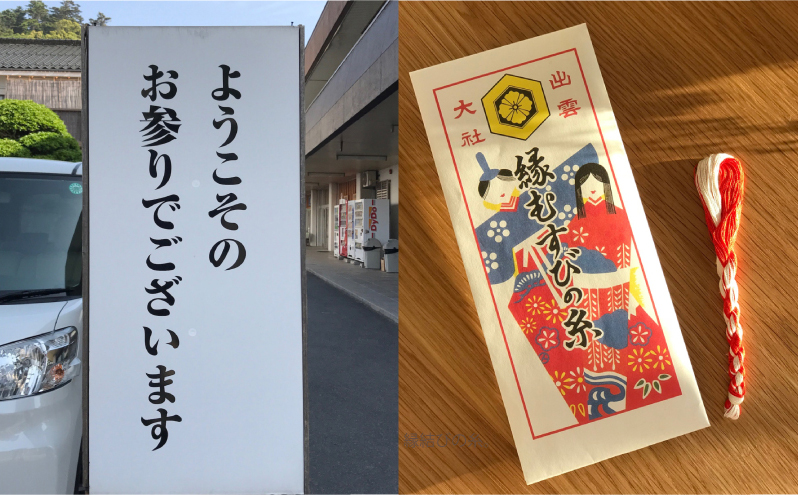 ようこその
お参りでございます
出雲
大社
縁むすびの糸